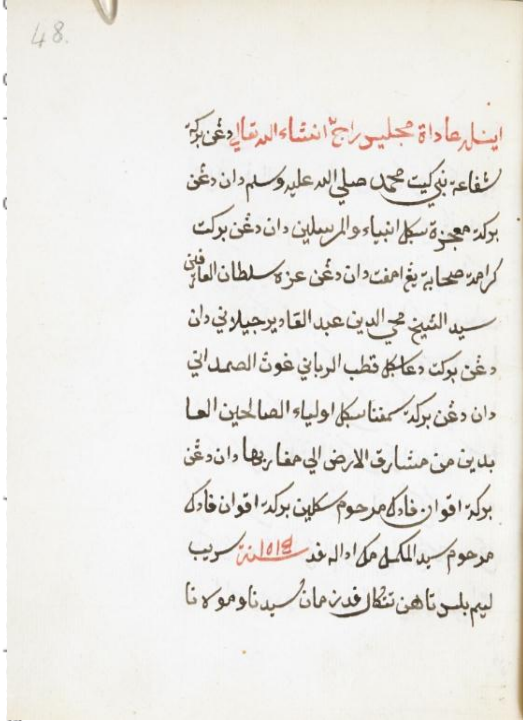 48.
اينله عاداة مجليس راج٢ انشاء الله تعالى دغن بركة
شفاعة نبي كيت محمد صلي الله عليه وسلم دان دغن
بركة معجزة سكل انبياء والمرسلين دان دغن بركت
كرامة صحابة يغ امفت دان دغن عزة سلطان العارفين
سيد الشيخ محي الدين عبد القادير جيلاني دان
دغن بركت دعا كل قطب الرباني غوث الصمداني
دان دغن بركة سمفنا سكل اولياء الصالحين العا
بدين من مشارق الارض الي مغاربها دان دغن
بركة افوان فادك مرحوم سكلين بركة افوان فادك
مرحوم سيد المكمل مك اداله فد سنة ١٥١٩ سريب
ليم بلس تاهن تتكال فد زمان سيدنا ومولانا